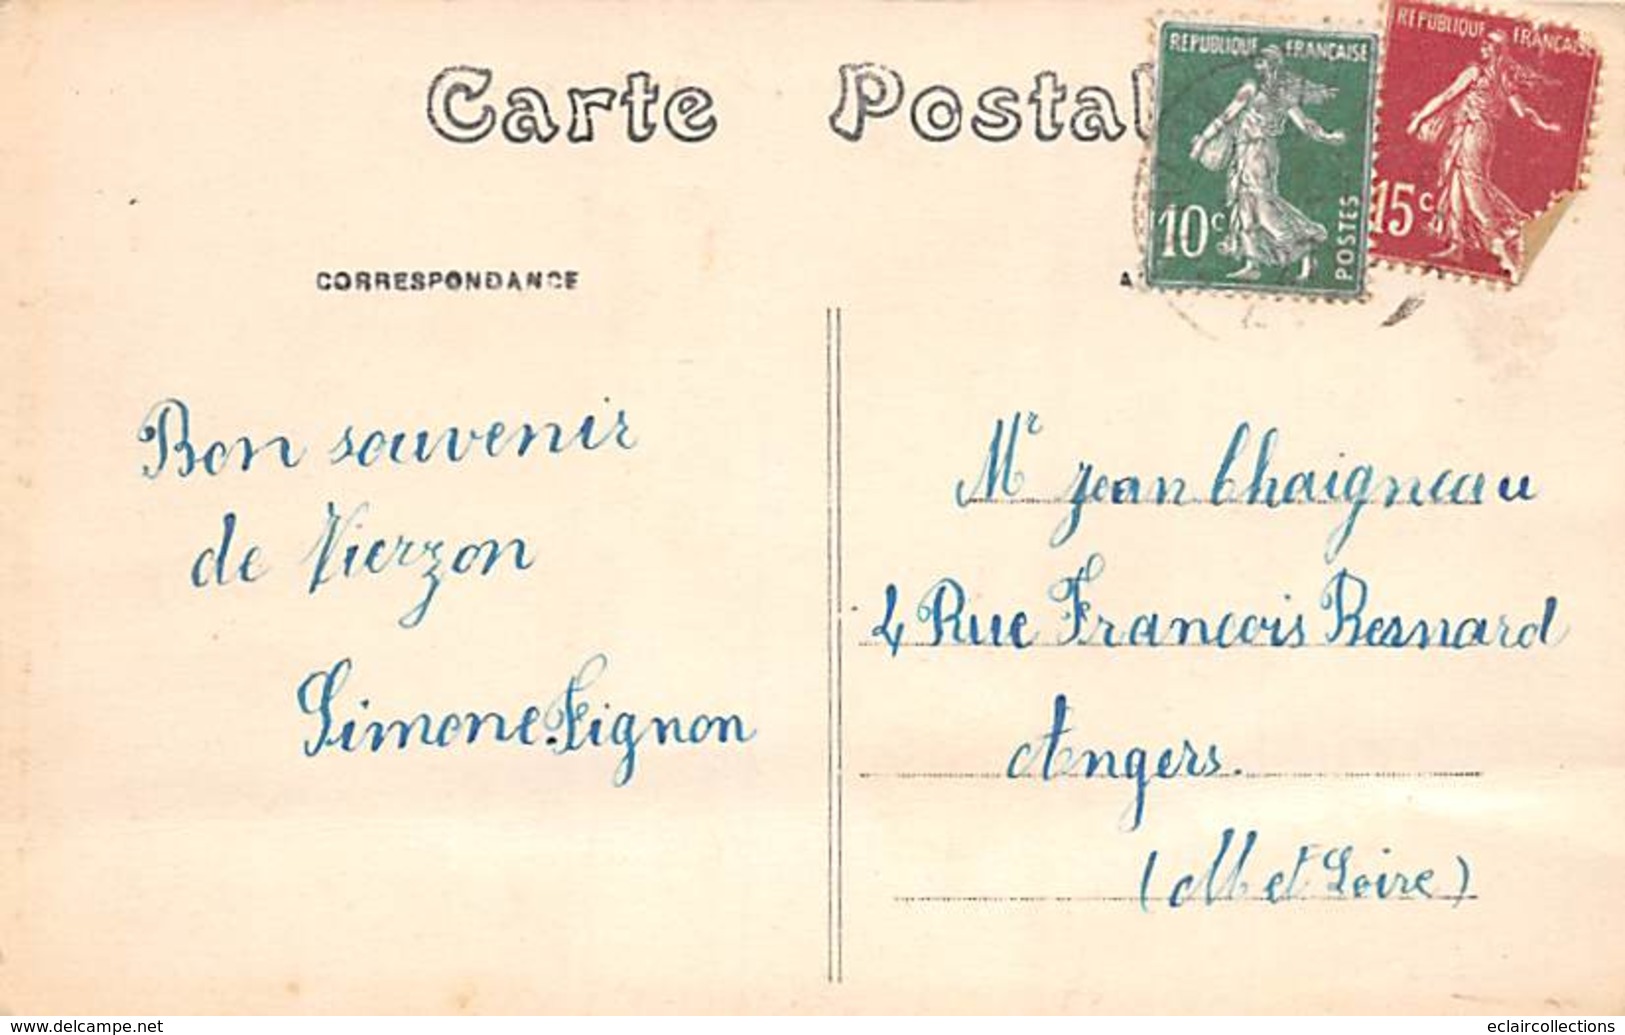 Carte Postal
REPUBLIQUE FRANÇAISE
10c
POSTES
REPUBLIQUE FRANÇAISE
15c
CORRESPONDANCE
A
Bon souvenir
de Vierzon
Simone Fignon
Mr Jean Chaigneau
4 Rue Francois Besnard
Angers.
(M et Loire)
www.delcampe.net
eclaircollections